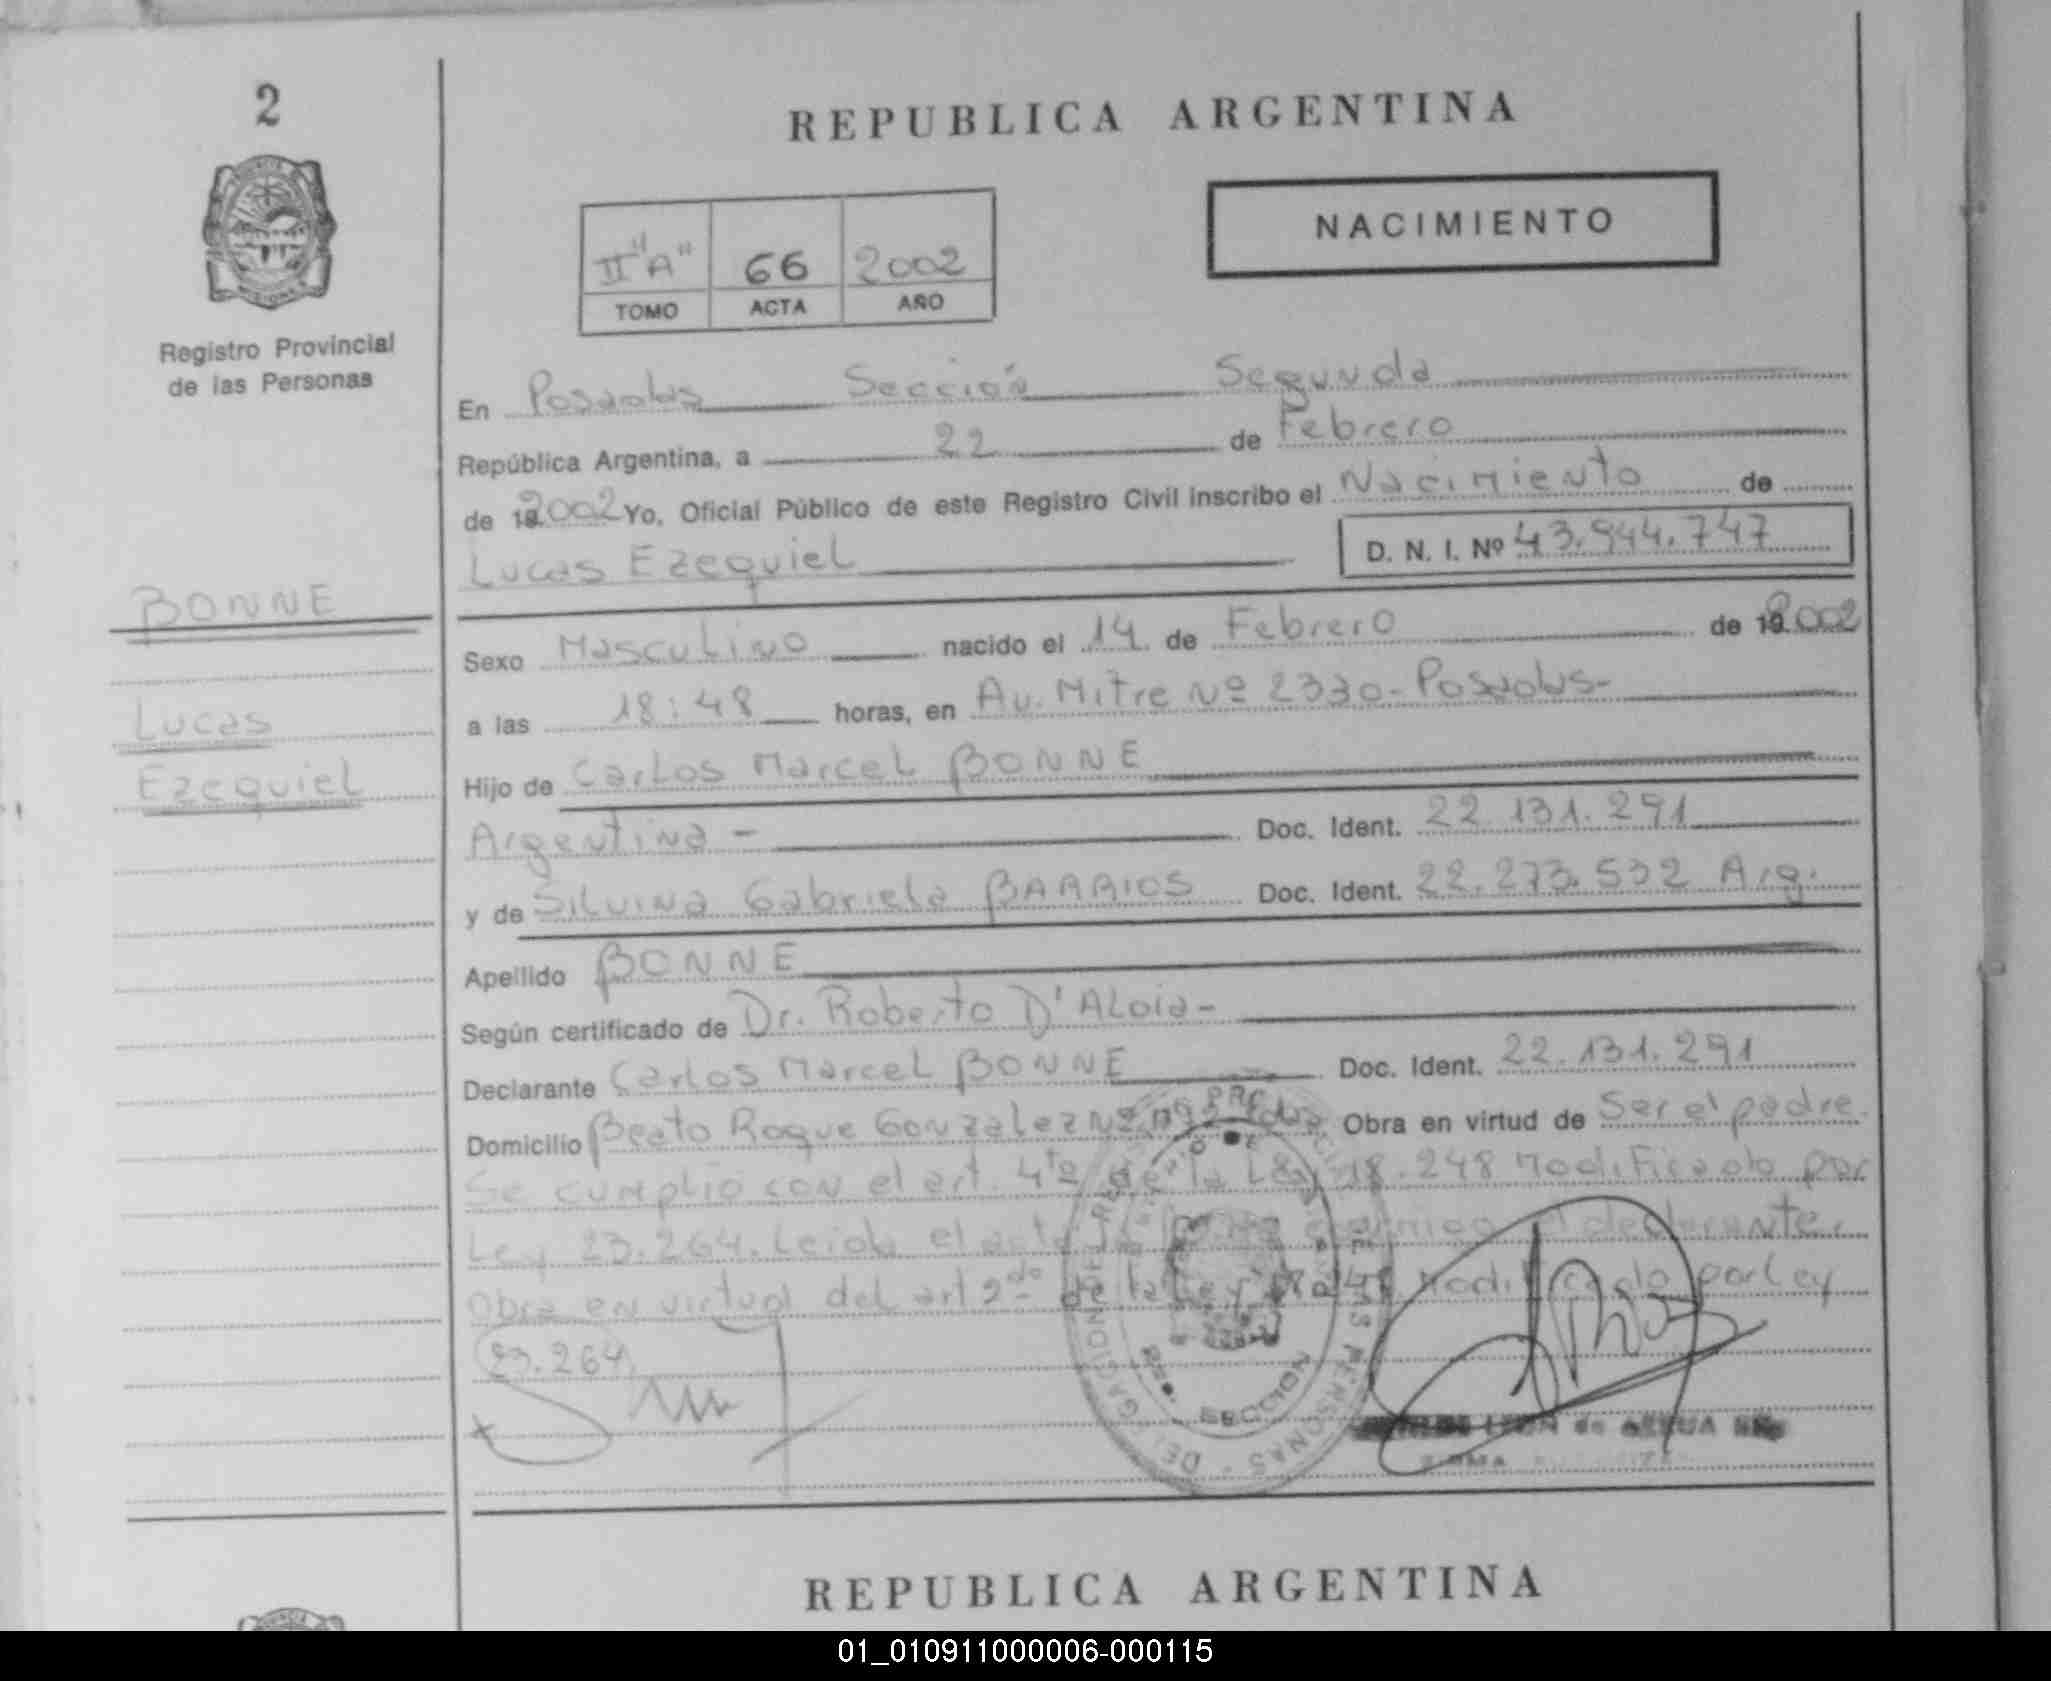 2
REPUBLICA ARGENTINA
NACIMIENTO
II "A" 66 2002
TOMO ACTA AÑO
Registro Provincial
de las Personas
En Posadas Sección Segunda
República Argentina, a 22 de Febrero
de 2002 Yo, Oficial Público de este Registro Civil inscribo el Nacimiento de
Lucas Ezequiel D. N. I. Nº 43.944.747
BONNE
Lucas
Ezequiel
Sexo Masculino nacido el 14 de Febrero de 2002
a las 18:48 horas, en Av. Mitre Nº 2330 - Posadas -
Hijo de Carlos Marcel BONNE
Argentina - Doc. Ident. 22.131.291
y de Silvina Gabriela BARRIOS Doc. Ident. 22.273.532 Arg.
Apellido BONNE
Según certificado de Dr. Roberto D'Aloia -
Declarante Carlos Marcel BONNE Doc. Ident. 22.131.291
Domicilio Beato Roque Gonzalez Nº Obra en virtud de Ser el padre.
Se cumplio con el art. 4to de la Ley 18.248 Modificado por
Ley 23.264. Leida el acta la firma conmigo el declarante.
Obra en virtud del art 2do de la Ley Modificado por Ley
23.264
SECCION
REPUBLICA ARGENTINA
01_010911000006-000115